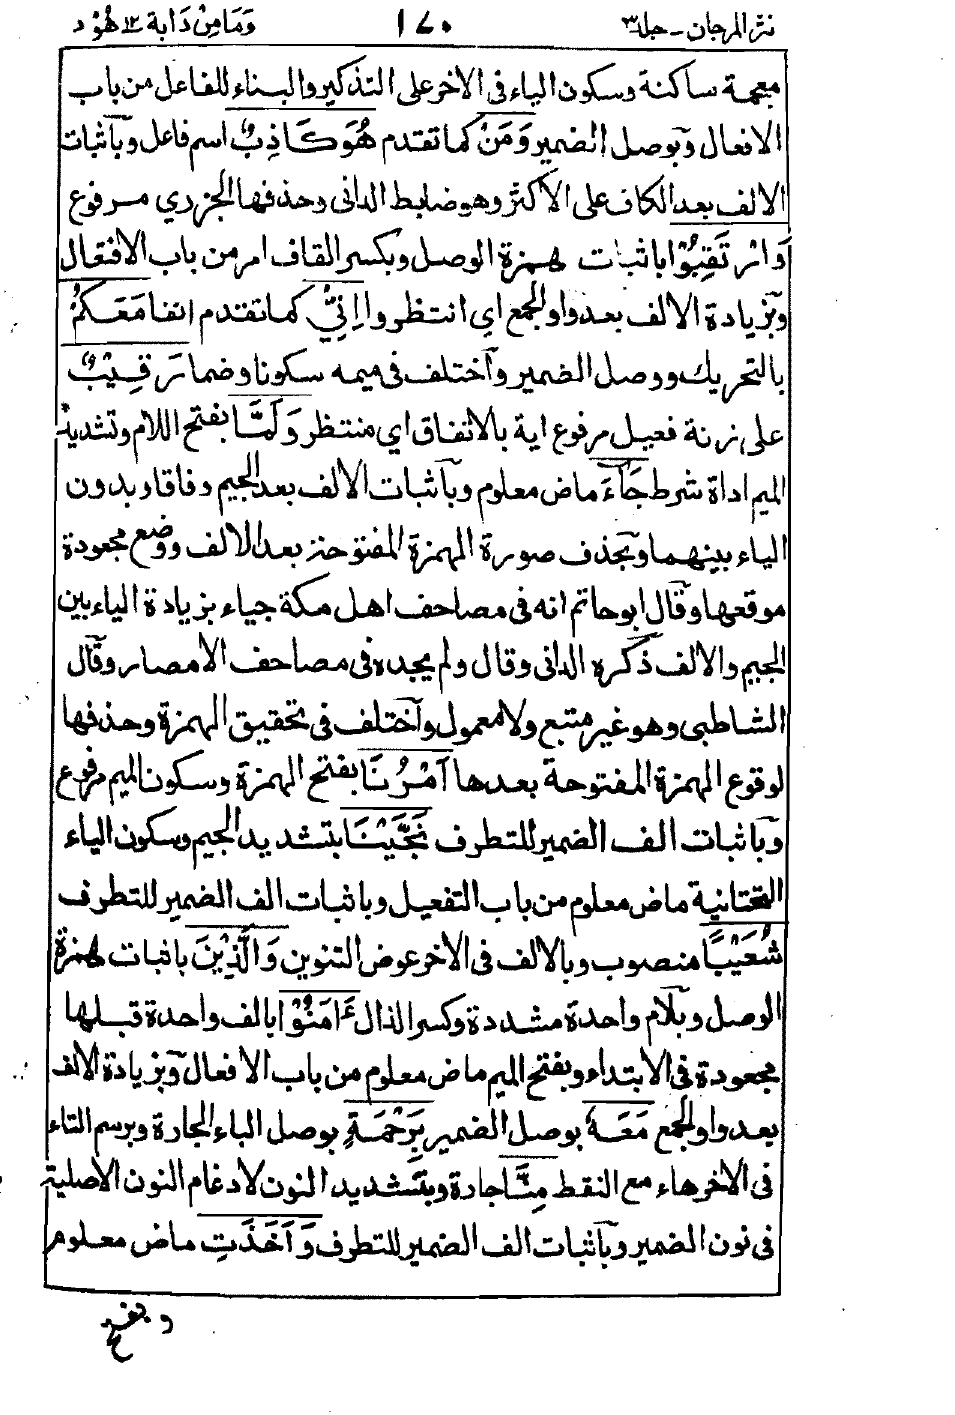 نثر المرجان - جلد ٣ ١٧٠ وَمَا مِنْ دَابة ١٢ هُوْد
معجمة ساكنة وسكون الياء فى الاخر على التذكير والبناء للفاعل من باب
الافعال وبوصل الضمير وَمَنْ كما تقدم هُوَ كَاذِبٌ اسم فاعل وبآثبات
الالف بعد الكاف على الأكثر وهو ضابط الدانى وحذفها الجزري مرفوع
وَارْتَقِبُوْا باثبات همزة الوصل وبكسر القاف امر من باب الافتعال
وبزيادة الالف بعد واو الجمع اي انتظروا اِنِّيْ كما تقدم انفا مَعَكُمْ
بالتحريك ووصل الضمير وآختلف فى ميمه سكونا وضما رَقِيْبٌ
على زنة فعيل مرفوع اية بالاتفاق اي منتظر وَلَمَّا بفتح اللام وتشديد
الميم اداة شرط جَآءَ ماض معلوم وبآثبات الالف بعد الجيم وفاقا وبدون
الياء بينهما وبحذف صورة الهمزة المفتوحة بعد الالف ووضع مجعودة
موقعها وقآل ابو حاتم انه فى مصاحف اهل مكة جياء بزيادة الياء بين
الجيم والالف ذكره الدانى وقال ولم يجده فى مصاحف الامصار وقآل
الشاطبى وهو غير متبع ولا معمول وآختلف فى تحقيق الهمزة وحذفها
لوقوع الهمزة المفتوحة بعدها اَمْرُنَا بفتح الهمزة وسكون الميم مرفوع
وبآثبات الف الضمير للتطرف نَجَّيْنَا بتشديد الجيم وسكون الياء
التحتانية ماض معلوم من باب التفعيل وباثبات الف الضمير للتطرف
شُعَيْبًا منصوب وبالالف فى الاخر عوض التنوين وَالَّذِيْنَ باثبات همزة
الوصل وبلآم واحدة مشددة وكسر الذال ءَامَنُوْا بالف واحدة قبلها
مجعودة فى الابتداء وبفتح الميم ماض معلوم من باب الافعال وبزيادة الالف
بعد واو الجمع مَعَهٗ بوصل الضمير بِرَحْمَةٍ بوصل الباء الجارة وبرسم التاء
فى الاخر هاء مع النقط مِنَّا جارة وبتشديد النون لادغام النون الاصلية
فى نون الضمير وبآثبات الف الضمير للتطرف وَاَخَذَتِ ماض معلوم
و بفتح